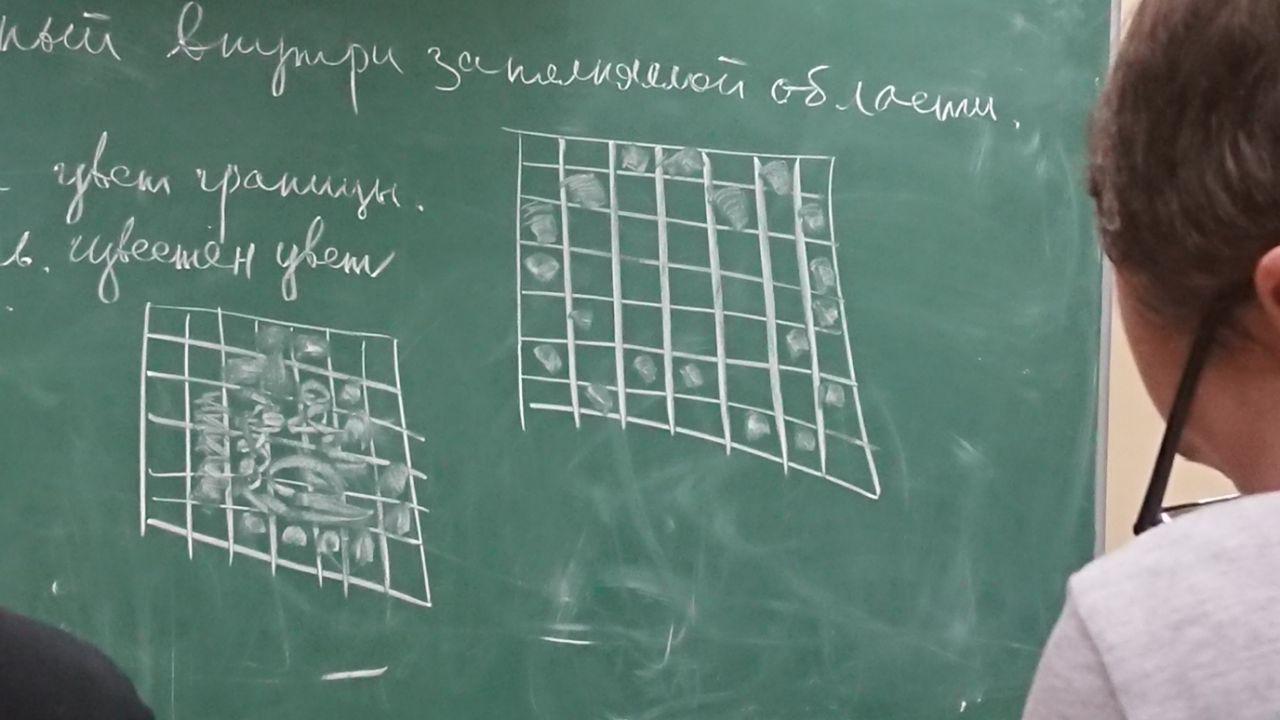 ный внутри заполняемой области.
- цвет границы.
в. цвестен цвет